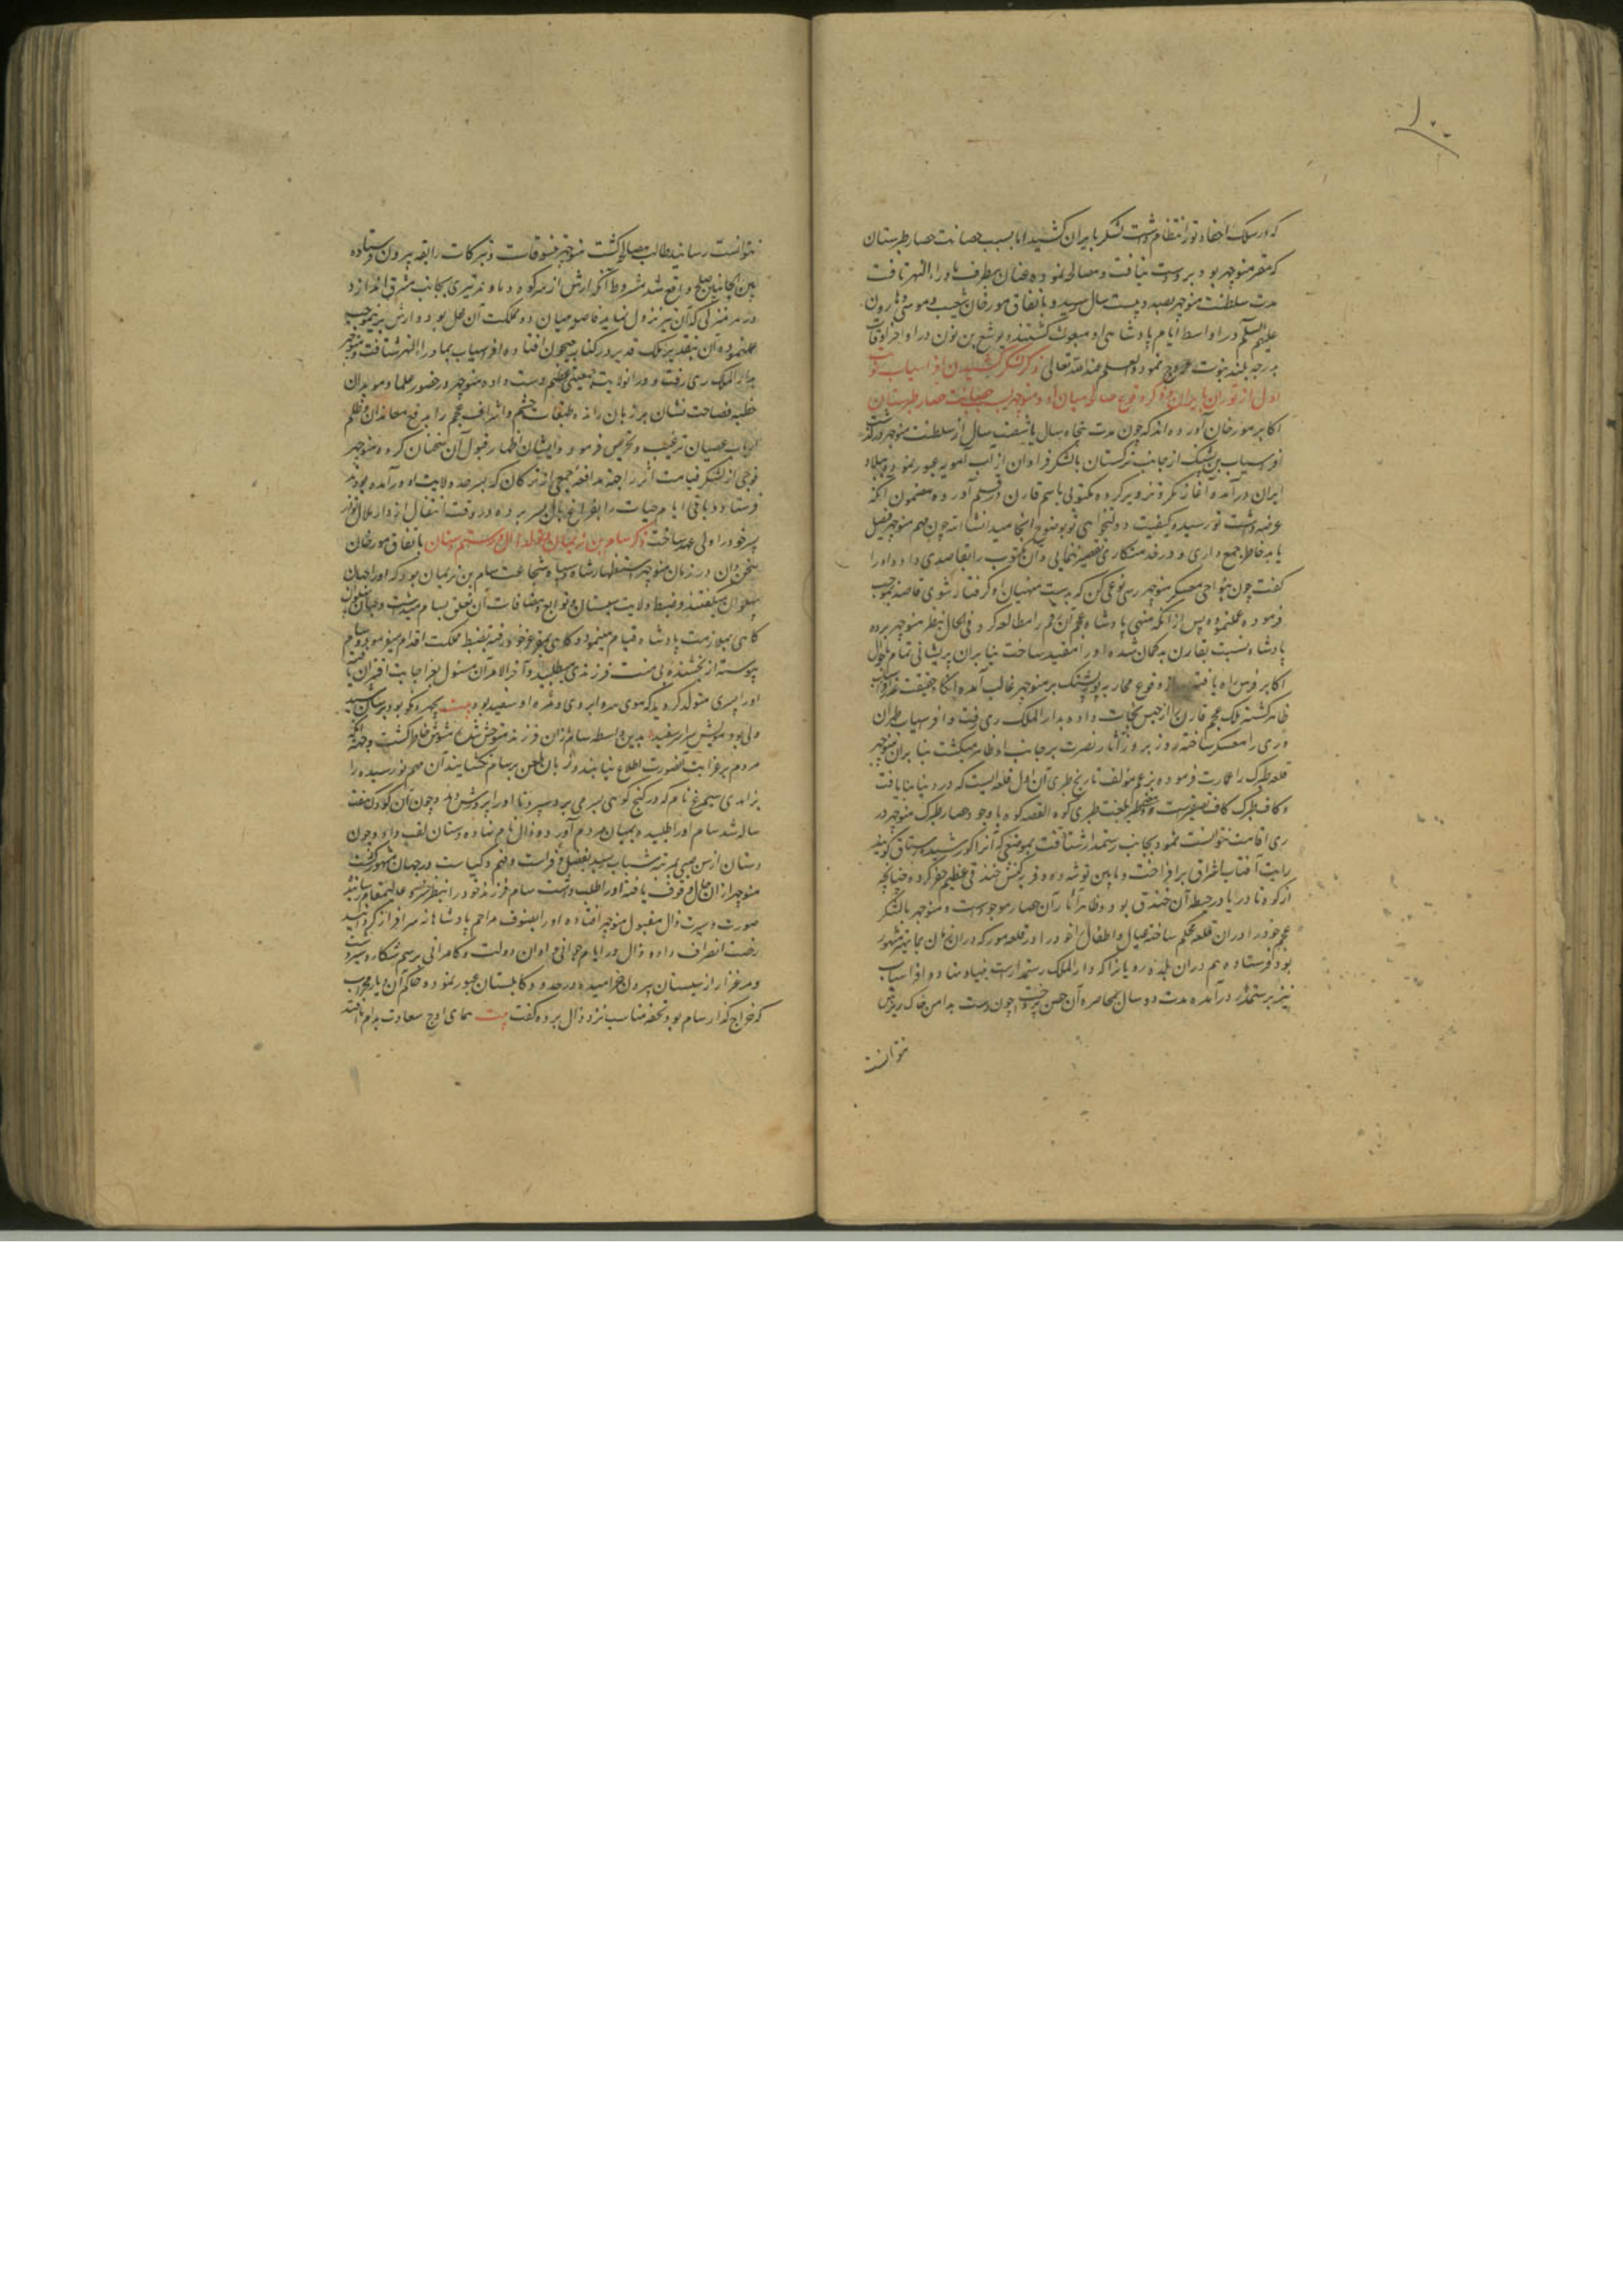 ۱۰۰
که در سلک احفاد تور انتظام داشت لشکر بایران کشید اما بسبب حصانت حصار طبرستان
که مقر منوچهر بود بر وی دست نیافت و مصالحه نموده عنان بطرف ماوراء النهر تافت
مدت سلطنت منوچهر بصد و بیست سال رسید و باتفاق مورخان شعیب و موسی و هارون
علیهم السلم در اواسط ایام پادشاهی او مبعوث گشتند و یوشع بن نون در اواخر اوقات
بدرجه بلند نبوت عروج نمود و العلم عند الله تعالی ذکر لشکر کشیدن افراسیاب کرت
اول از توران بایران و ذکر وقوع صلح میان او و منوچهر بسبب حصانت حصار طبرستان
اکابر مورخان آورده اند که چون مدت پنجاه سال یا شصت سال از سلطنت منوچهر درگذشت
افراسیاب بن پشنگ از جانب ترکستان با لشکر فراوان از آب آمویه عبور نمود و ببلاد
ایران درآمد و آغاز مکر و تزویر کرده مکتوبی باسم قارن در قلم آورده مضمون آنکه
عرضه داشت تو رسید و کیفیت دولتخواهی تو بوضوح انجامید انشا الله چون مهم منوچهر فیصل
یابد خاطر جمع داری و در خدمتکاری تقصیر ننمایی و آن مکتوب را بقاصدی داد و او را
گفت چون بنواحی معسکر منوچهر رسی نوعی کن که بدست منهیان او گرفتار شوی قاصد بموجب
فرموده عمل نموده پس از آنکه منهی پادشاه عجم آن رقم را مطالعه کرد فی الحال بنظر منوچهر برده
پادشاه نسبت بقارن بد گمان شده او را مقید ساخت بنا بران پریشانی تمام باحوال
اکابر فرس راه یافته از وقوع محاربه پور پشنگ بر منوچهر غالب آمد آنگاه حقیقت غدر افراسیاب
ظاهر گشته ملک عجم قارن را از حبس نجات داده بدار الملک ری رفت و افراسیاب طهران
و ری را معسکر ساخته روز بروز آثار نصرت بر جانب او ظاهر میگشت بنا بران منوچهر
قلعه طبرک را عمارت فرموده بزعم مؤلف تاریخ طبری آن اول قلعه ایست که در دنیا بنا یافت
و کاف طبرک کاف تصغیرست و معنی طبر بلغت طبری کوه القصه کوه باوجود حصار طبرک منوچهر در
ری اقامت نتوانست نمود بجانب رستمدار شتافت بموضعی که آنرا کورشید رستاق گویند
رایت آفتاب اشراق برافراخت و مابین توشه ده و فر کنش خندقی عظیم حفر کرده چنانچه
از کوه تا دریا در حیطه آن خندق بود و ظاهرا آثار آن حصار موجودست و منوچهر با لشکر
عجم خود در اوران قلعه محکم ساخته عیال و اطفال خود را در قلعه مور که دران زمان بمانهیر مشهور
بود فرستاده هم دران بلده رویانرا که دار الملک رستمدارست بنیاد نهاد و افراسیاب
نیز برستمدار درآمده مدت دو سال بمحاصره آن حصن پرداخت چون دست بدامن خاک ریزش
نتوانست
نتوانست رسانید طالب مصالحه گشت منوچهر تنسوقات و تبرکات رابقه بیرون فرستاده
بین الجانبین صلح واقع شد مشروط آنکه آرش از سر کوه دماوند تیری بجانب مشرق اندازد
و در هر منزلی که آن تیر نزول نماید فاصل میان دو مملکت آن محل بود و آرش برینموجب
عمل نموده آن تیر بتقدیر ملک قدیر در کنار جیحون افتاده افراسیاب بماوراء النهر شتافت و منوچهر
بدار الملک ری رفت و در آن ولایت جمعیتی عظیم دست داده منوچهر در حضور علما و موبدان
خطبه فصاحت نشان بر زبان رانده طبقات حشم و اشراف عجم را بر دفع معاندان و ظلم
ارباب عصیان ترغیب و تحریص فرمود و ایشان اظهار قبول آن سخنان کرده منوچهر
فوجی از لشکر قیامت اثر را جهت مدافعه جمعی از ترکان که بسرحد ولایت او درآمده بودند
فرستاد و باقی ایام حیات را بفراغ بال بسر برده در وقت انتقال از دار ملال نوذر
پسر خود را ولی عهد ساخت ذکر سام بن نریمان و تولد زال و رستم دستان باتفاق مورخان
سخن دان در زمان منوچهر استظهار شاه و سپاه بشجاعت سام بن نریمان بود که او را جهان
پهلوان میگفتند و ضبط ولایت سیستان و توابع و مضافات آن تعلق بسام میداشت و جهان پهلوان
گاهی بملازمت پادشاه قیام مینمود و گاهی بمقر عز خود رفته بضبط مملکت اقدام میفرمود و سام
پیوسته از بخشنده بی منت فرزندی میطلبید و آخر الامر آن مسئول بعز اجابت اقتران یافت
او را پسری متولد گردید که موی سر و ابروی و مژه او سفید بود بیت چهره نیکو بود برسان شید
ولی بود مویش سراسر سفید بدین واسطه سام از آن فرزند متوحش شد و مشوش خاطر گشت و جهت آنکه
مردم بر غرابت آن صورت اطلاع نیابند و زبان طعن بر سام نگشایند آن مهم نو رسیده را
بزاهدی سیمرغ نام که در کنج کوهی بسر می برد سپرد تا او را پرورش دهد و چون آن کودک هفت
ساله شد سام او را طلبیده بمیان مردم آورده و زال نام نهاد و دستان لقب داد و چون
دستان از سن صبی بمرتبه شباب رسید بفضل و فراست و فهم و کیاست در جهان مشهور گشت
منوچهر از آن حال وقوف یافته او را طلب داشت سام فرزند خود را بنظر خسرو عالیمقام رسانید
صورت و سیرت زال مقبول منوچهر افتاده او را بصنوف مراحم پادشاهانه سرافراز گردانید
رخصت انصراف داده و زال در ایام جوانی و اوان دولت و کامرانی برسم شکار و سیر دشت
و مرغزار از سیستان بیرون خرامیده در حدود کابلستان عبور نمود و حاکم آن دیار مهراب
که خراج گذار سام بود تحفه مناسب نزد زال برده گفت بیت همای اوج سعادت بدام ما افتد